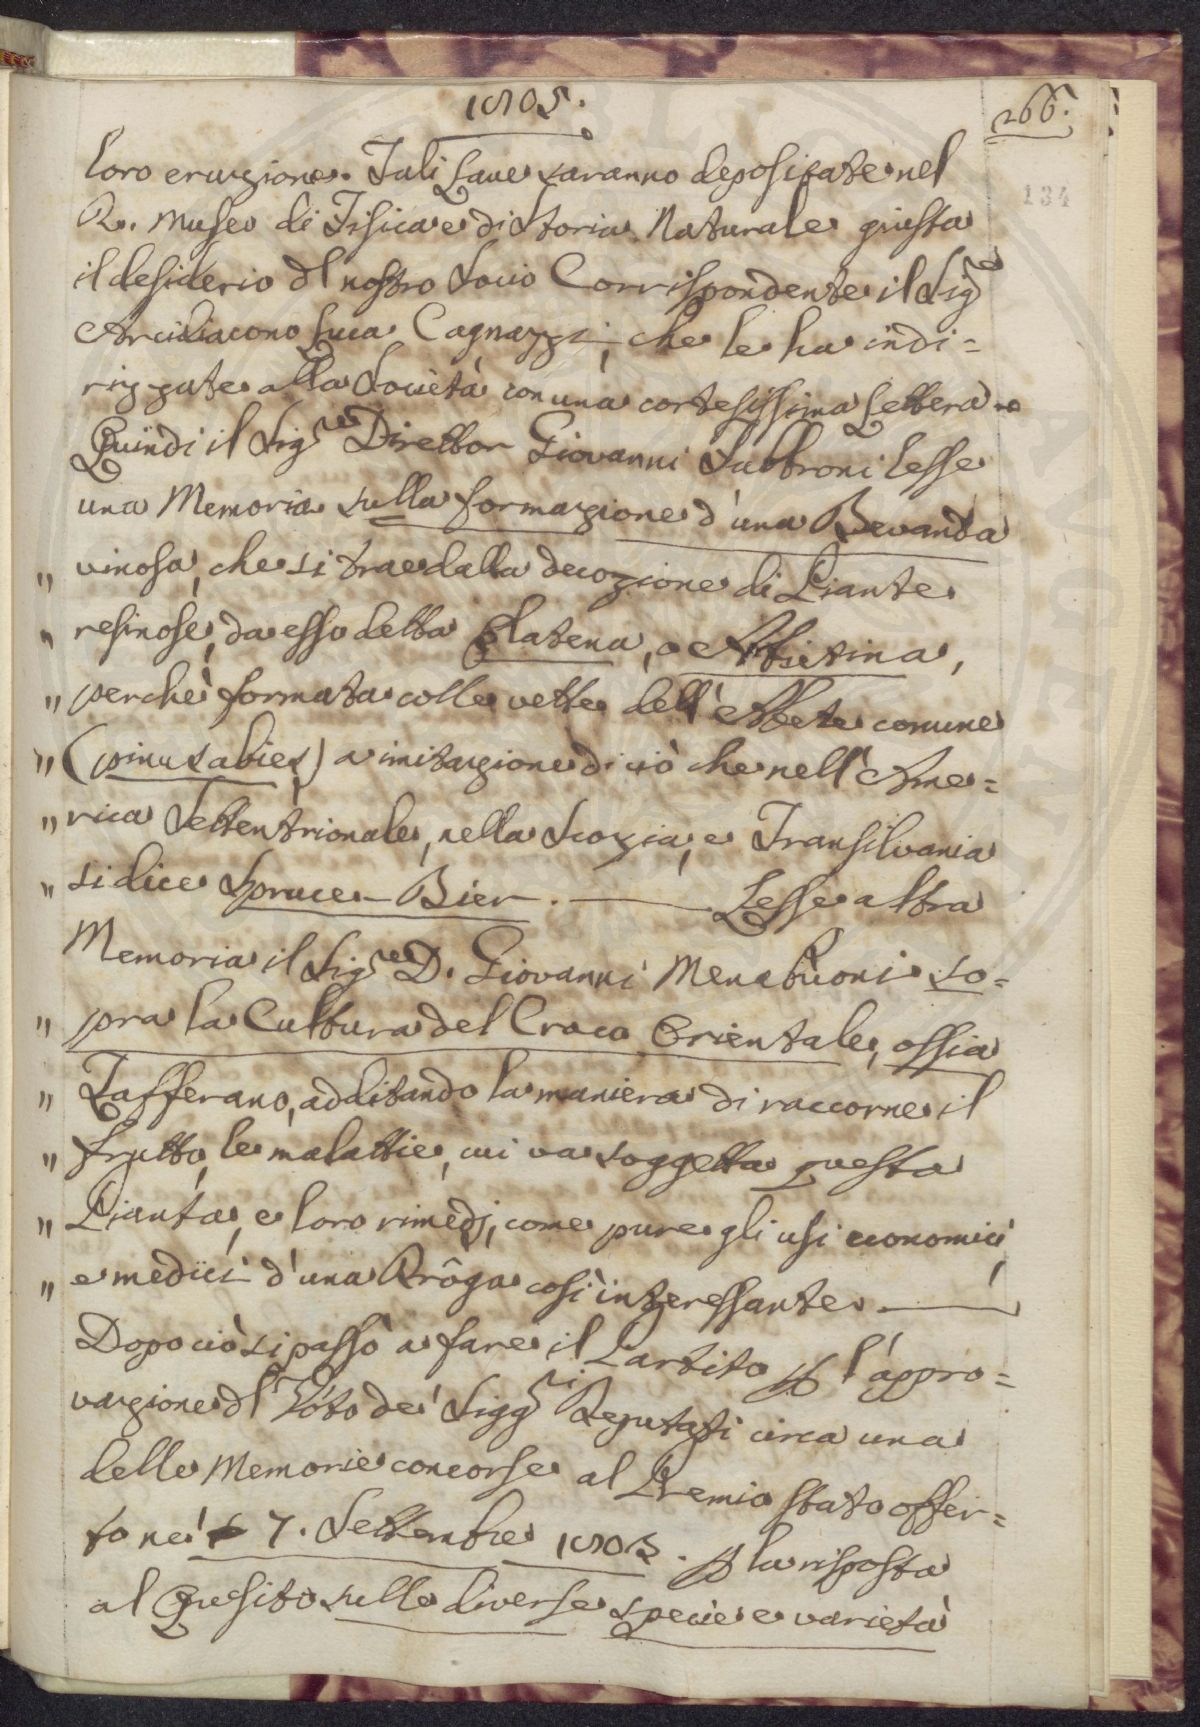 1805.
266.
134
loro eruzione. Tali Lave saranno depositate nel
R. Museo di Fisica e di Storia Naturale giusta
il desiderio dl nostro Socio Corrispondente il Sig.re
Arcidiacono Luca Cagnazzi, che le ha indi=
rizzate alla Società con una cortesissima Lettera.
Quindi il Sig.re Direttor Giovanni Fabbroni lesse
una Memoria sulla formazione d'una Bevanda
" vinosa, che si trae dalla decozione di Piante
" resinose, da esso detta Elatena, o Abietina,
" perchè formata colle vette dell'Abete comune
" (pinus abies) a imitazione di ciò che nell'Ame=
" rica Settentrionale, nella Scozia, e Transilvania
" si dice Spruce-Bier. — Lesse altra
Memoria il Sig.re D. Giovanni Menabuoni so=
" pra la Cultura del Croco Orientale, ossia
" Zafferano, additando la maniera di raccorne il
" frutto, le malattie, cui va soggetta questa
" Pianta, e loro rimedj, come pure gli usi economici,
" e medici d'una Drôga così interessante. —
Dopo ciò si passò a fare il Partito p l'appro=
vazione dl Voto de' Sigg.ri Deputati circa una
delle Memorie concorse al Premio stato offer=
to ne' 7. Settembre 1803. p la risposta
al Quesito sulle diverse specie e varietà